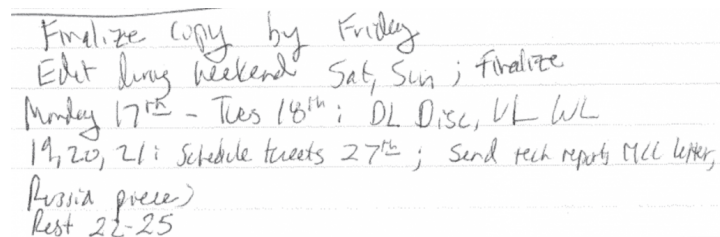 Finalize copy by Friday
Edit during weekend Sat, Sun ; finalize
Monday 17th - Tues 18th : DL Disc, VL WL
19, 20, 21 : Schedule tweets 27th ; Send tech reports MCC letter,
Russia piece)
Rest 22-25